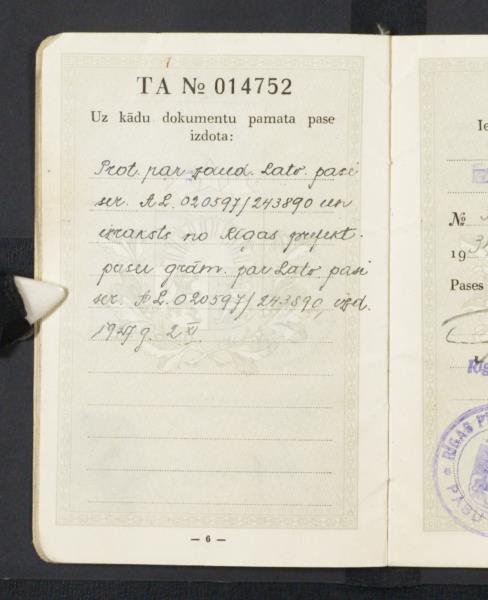 TA № 014752
Uz kādu dokumentu pamata pase
izdota:
Prot. par zaud. Latv. pasi
ser. AL. 020597/243890 un
izraksts no Rīgas prefekt.
pasu grām. par Latv. pasi
ser. AL. 020597/243890 izd.
1927 g. 2 XI.
— 6 —
Ie
№
19
Pases
Rīg
RĪGAS P